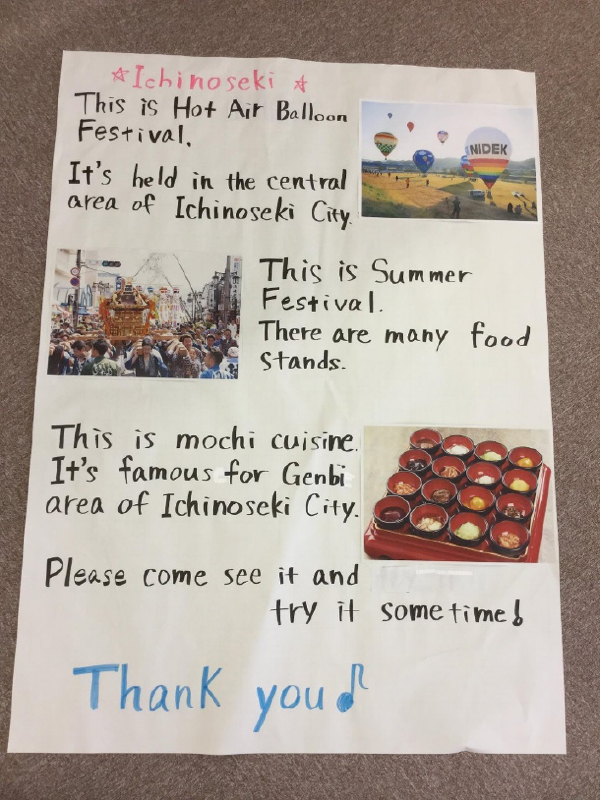 ☆Ichinoseki☆
This is Hot Air Balloon
Festival.
NIDEK
It's held in the central
area of Ichinoseki City.
This is Summer
Festival.
There are many food
stands.
This is mochi cuisine.
It's famous for Genbi
area of Ichinoseki City.
Please come see it and
try it sometime!
Thank you♪